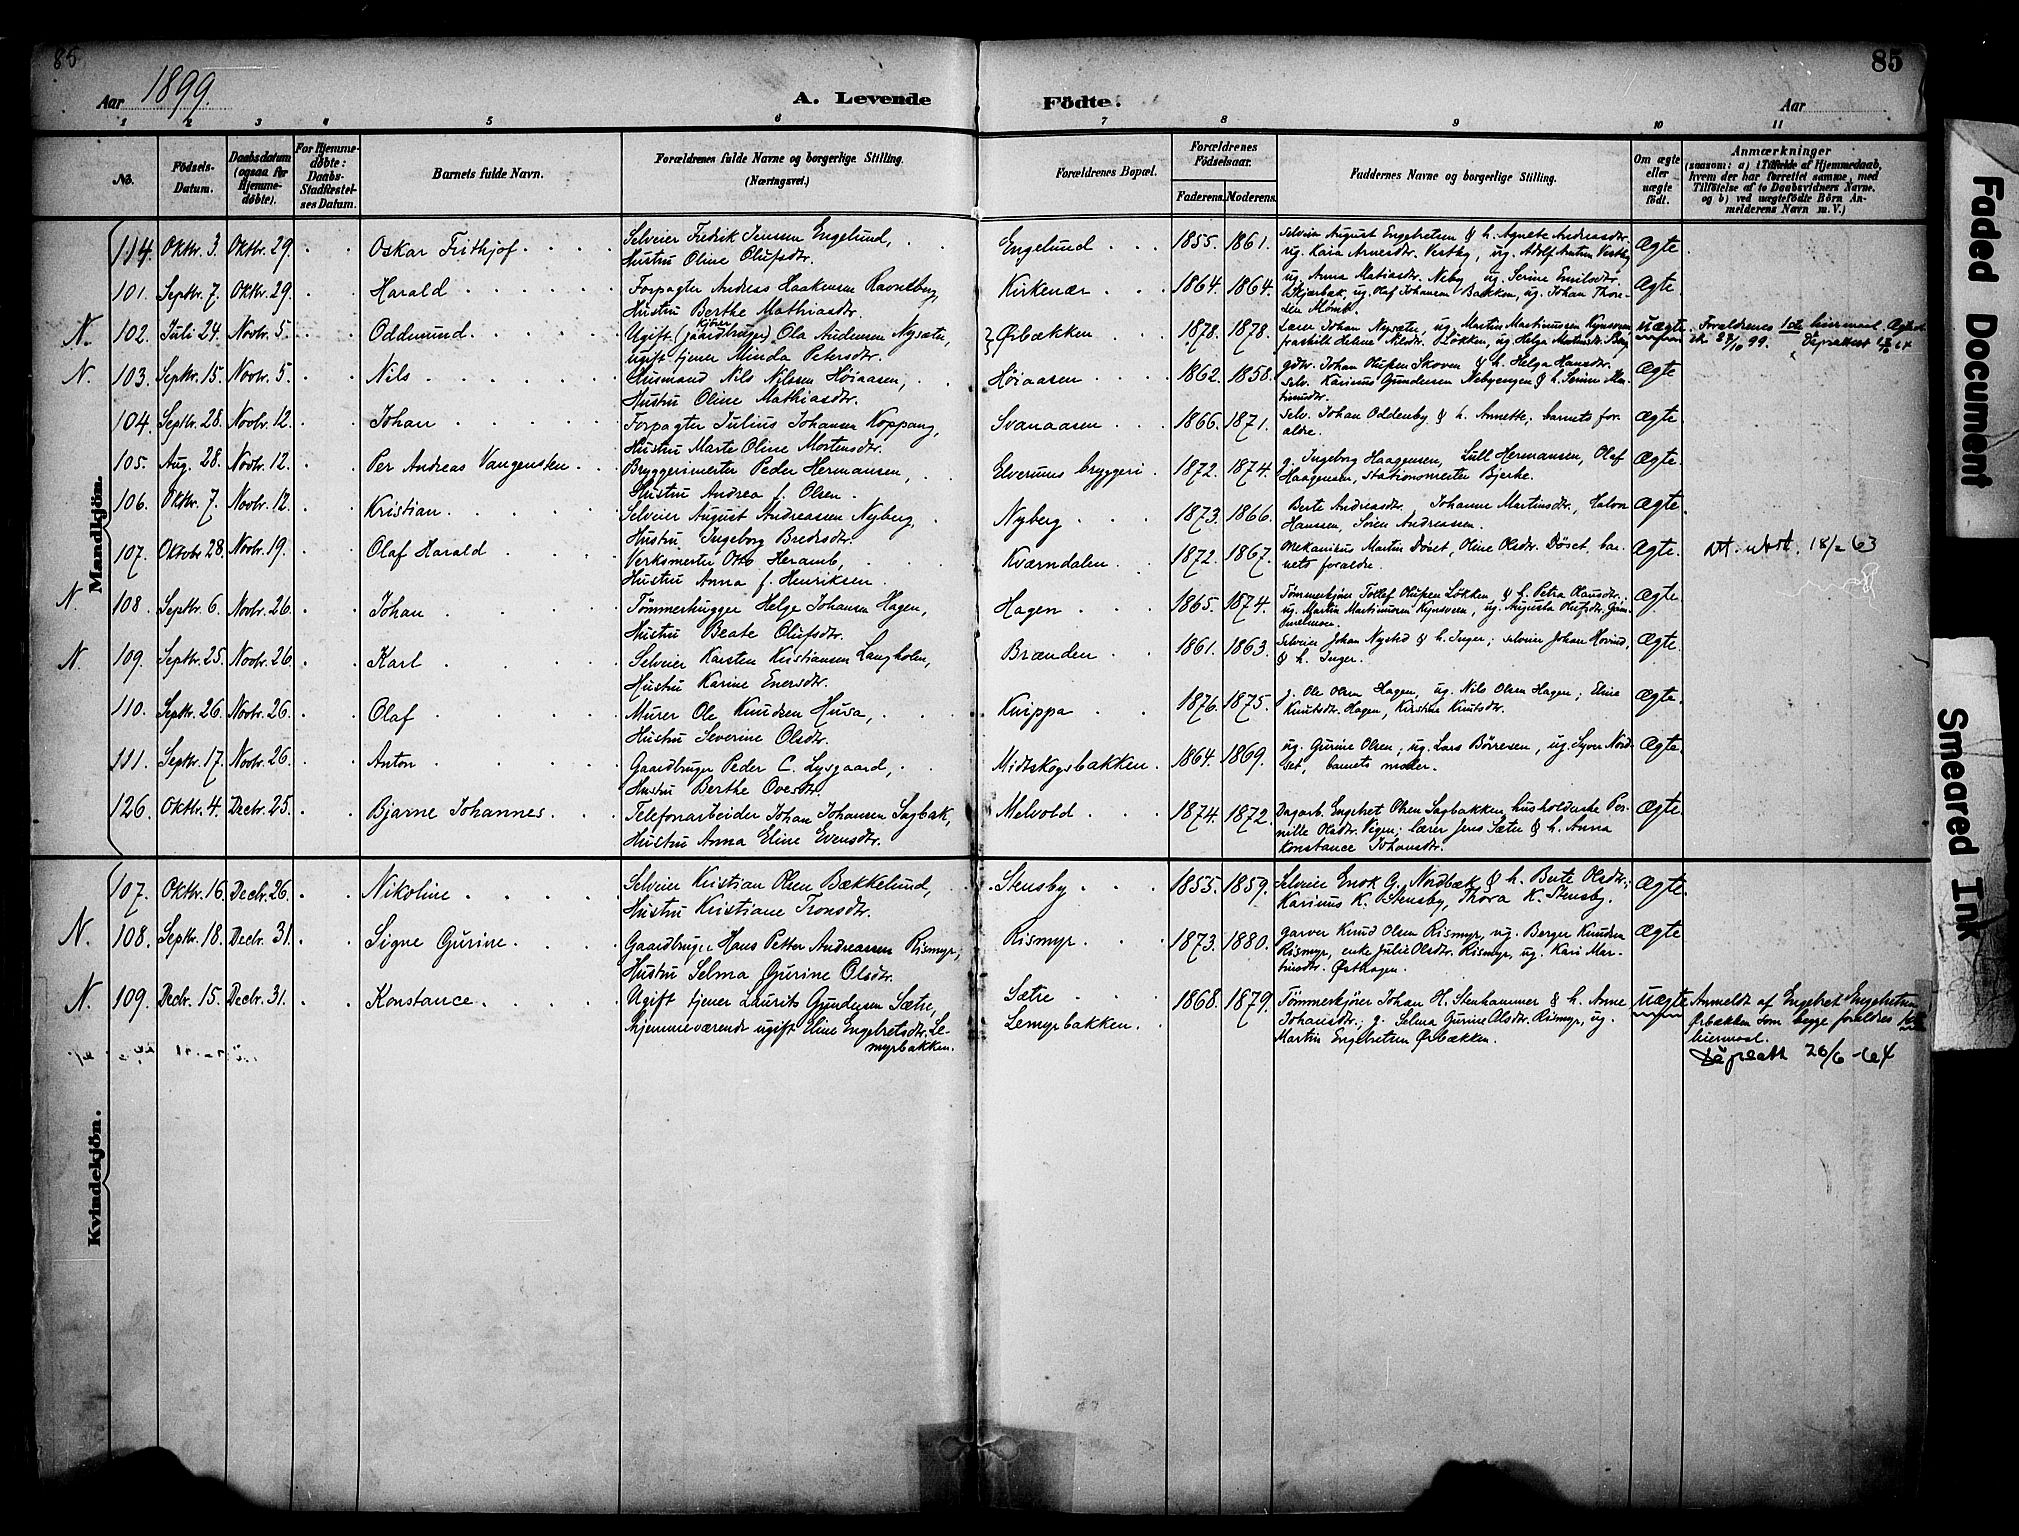 85
85
Aar 1899.
A. Levende Födte.
Aar
1 2 3 4 5 6 7 8 9 10 11
No.
Födsels-Datum.
Daabsdatum (ogsaa for Hjemmedøbte).
For Hjemmedøbte: Daabs-Stadfæstelses Datum.
Barnets fulde Navn.
Forældrenes fulde Navne og borgerlige Stilling.
(Næringsvei.)
Forældrenes Bopæl.
Forældrenes Födselsaar.
Faderens. Moderens.
Faddernes Navne og borgerlige Stilling.
Om ægte eller uægte født.
Anmærkninger
(saasom: a) i Tilfælde af Hjemmedaab, hvem der har forrettet samme, med Tilföielse af to Daabsvidners Navne. og b) ved uægtefödte Börn Anmelderens Navn m. V.)
Mandkjön.
114. Oktbr. 3. Oktbr. 29. Oskar Frithjof Selveier Fredrik Jensen Engelund, Engelund 1855. 1861. Selveier August Engebretsen & h. Agnete Andreasdtr. Ægte.
Hustru Oline Olufsdtr. ug. Kaia Arnesdtr. Vestby, ug. Adolf Antun Vestby
101. Septbr. 7. Oktbr. 29. Harald Forpagter Andreas Haakensen Ravnelberg, Kirkenær 1864. 1864. ug. Anna Matiasdtr. Neby, ug. Serine Emilsdtr. Ægte.
Hustru Berthe Mathiasdtr. Skjærbæk, ug. Olaf Johansen Bakken, ug. Johan
N. 102. Juli 24. Novbr. 5. Oddmund Ugift Ola Andersen Nysæter, Ørbækken 1878. 1878. Johan Nysæter, ug. Martin Martinussen Kynsveen, uægte Forældrenes 1ste leiermaal.
ugift tjener Minda Petersdtr. fraskilt Helene Nilsdtr. Løkken, ug. Helga Mortensdtr. Berg 27/10 99.
N. 103. Septbr. 15. Novbr. 5. Nils Husmand Nils Nilsen Høiaasen, Høiaasen 1862. 1858. gdbr. Johan Olufsen Skoven & h. Helga Hansdtr. Ægte
Hustru Oline Mathiasdtr. selv. Karinus Gundersen Nebyengen & h. Serine Martinusdtr.
104. Septbr. 28. Novbr. 12. Johan Forpagter Julius Johansen Koppang, Svanaasen 1866. 1871. selv. Johan Oddenby & h. Annette; barnets foraldre. Ægte.
Hustru Marte Oline Mortensdtr.
105. Aug. 28. Novbr. 12. Per Andreas Vangensten Bryggerimester Peder Hermansen, Elverums bryggeri 1872. 1874. g. Ingeborg Haagensen, Lull Hermansen, Olaf Ægte.
Hustru Andrea f. Olsen. Haagensen, Stationsmester Bjerke.
106. Oktbr. 7. Novbr. 12. Kristian Selveier August Andreassen Nyberg, Nyberg 1873. 1866. Berte Andreasdtr. Johanne Martinsdtr., Halvor Ægte.
Hustru Ingeborg Bredesdtr. Hansen, Søren Andreassen.
107. Oktobr 28. Novbr. 19. Olaf Harald Verksmester Otto Heramb, Kværndalen 1872. 1867. Mekanikus Martin Døset, Oline Olsdtr. Døset, barnets foraldre. Ægte. Att. utst. 18/2 63
Hustru Anna f. Henriksen.
N. 108. Septbr. 6. Novbr. 26. Johan Tømmerhugger Helge Johansen Hagen, Hagen 1865. 1874. Tømmerkjører Tollef Olufsen Løkken & h. Petra Olausdtr. Ægte.
Hustru Beate Olufsdtr. ug. Martin Martinussen Kynsveen, ug. Augusta Olufsdtr.
N. 109. Septbr. 25. Novbr. 26. Karl Selveier Karsten Kristiansen Langholen, Brænden 1861. 1863. selveier Johan Nysted & h. Inger; selveier Johan Hovind, & h. Inger. Ægte.
Hustru Karine Enersdtr.
110. Septbr. 26. Novbr. 26. Olaf Murer Ole Knudsen Husa, Kvippa 1876. 1875. g. Ole Olsen Hagen, ug. Nils Olsen Hagen; Eline Ægte.
Hustru Severine Olsdtr. Knutsdtr. Hagen, Kirstine Knutsdtr.
111. Septbr. 17. Novbr. 26. Anton Gaardbruger Peder C. Lysgaard, Midtskogsbakken. 1864. 1869. ug. Gurine Olsen; ug. Lars Børresen, ug. Syver Nordset, barnets moder. Ægte.
Hustru Berthe Ovesdtr.
126. Oktbr. 4. Decbr. 25. Bjarne Johannes Telefonarbeider Johan Johansen Sagbak, Melvold 1874. 1872. Dagarb. Engebret Olsen Sagbakken, husholderske Pernille Olsdtr. Vigen; lærer Jens Sæter & h. Anna Konstance Johansdtr. Ægte.
Hustru Anna Eline Evensdtr.
Kvindekjön.
107. Oktbr. 16. Decbr. 26. Nikoline Selveier Kristian Olsen Bækkelund, Stensby 1855. 1859. Selveier Enok G. Nordbæk & h. Berte Olsdtr.; Ægte.
Hustru Kristiane Tronsdtr. Karinus K. Stensby, Thora K. Stensby.
N. 108. Septbr. 18. Decbr. 31. Signe Gurine Gaardbruger Hans Petter Andreassen Rismyr, Rismyr 1873. 1880. garver Knud Olsen Rismyr, ug. Berger Knudsen Ægte
Hustru Selma Gurine Olsdtr. Rismyr, enke Julie Olsdtr. Rismyr, ug. Kari Martinsdtr. Østhagen.
N. 109. Decbr. 15. Decbr. 31. Konstance Ugift tjener Laurits Gundersen Sætre, Sætre 1868. 1879. Tømmerkjører Johan H. Stenhammer & h. Anne uægte Anmeldt af Engebret Engebretsen
hjemmeværende ugift Eline Engebretsdtr. Lemyrbakken. Lemyrbakken. Johansdtr.; g. Selma Gurine Olsdtr. Rismyr, ug. Ørbækken som begge foraldres 1ste
Martin Engebretsen Ørbækken. leiermaal.
Dåpsatt 26/6 -64
Faded Document
Smeared Ink